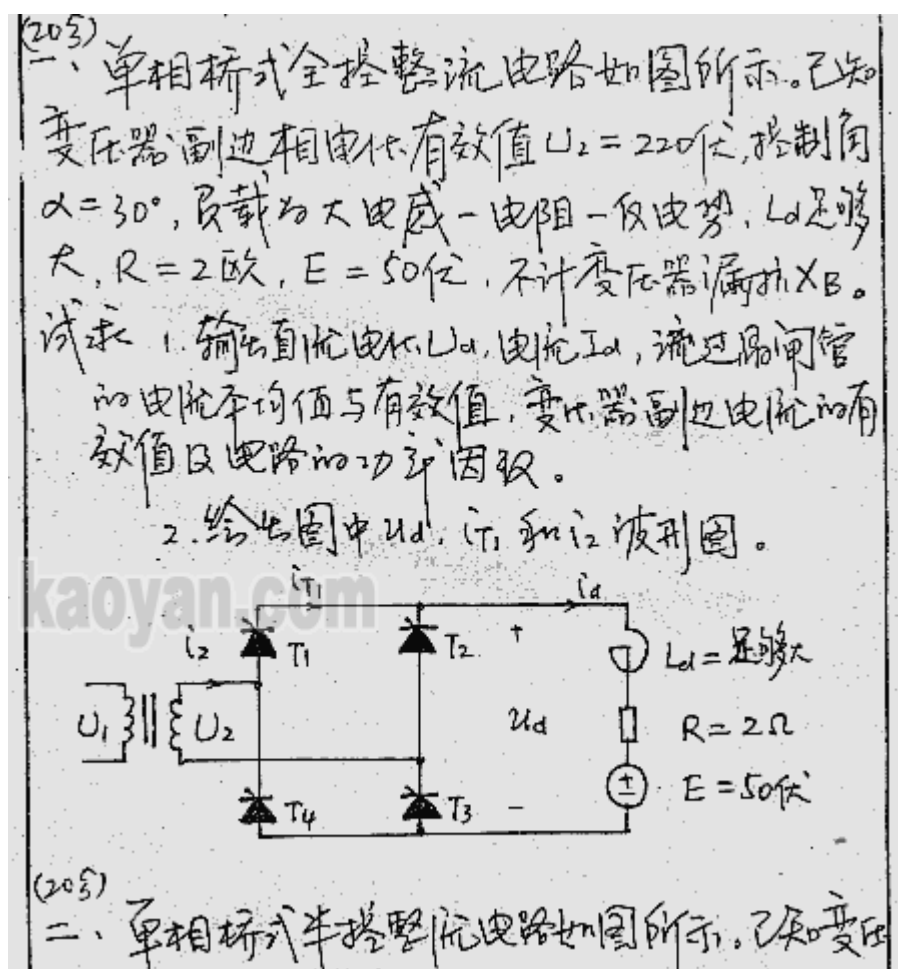 (20分)
一、单相桥式全控整流电路如图所示。已知
变压器副边相电压有效值U₂=220伏,控制角
α=30°,负载为大电感-电阻-反电势,Ld足够
大,R=2欧,E=50伏,不计变压器漏抗XB。
试求 1.输出直流电压Ud,电流Id,流过晶闸管
的电流平均值与有效值,变压器副边电流的有
效值及电路的功率因数。
2.绘出图中ud、iT1和i2波形图。
kaoyan.com
iT1 id
i2 T1 T2 + Ld=足够大
U1 U2 ud R=2Ω
T4 T3 - + E=50伏
(20分)
二、单相桥式半控整流电路如图所示。已知变压